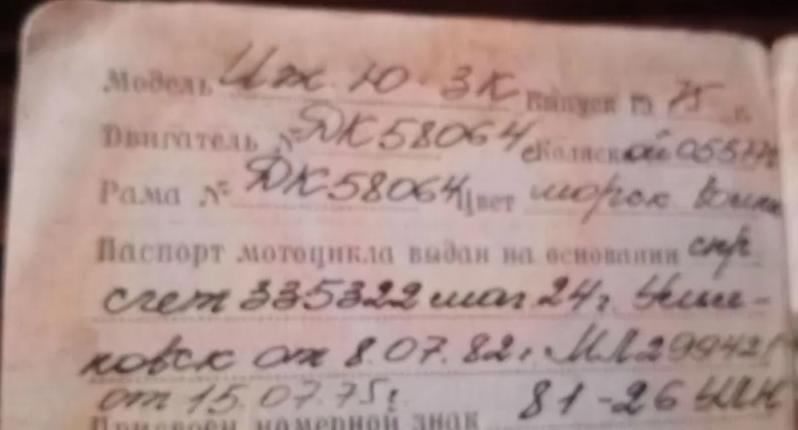 Модель Иж. Ю-3К Выпуск г. 75 г.
Двигатель № ДК58064 с коляской
Рама № ДК58064 Цвет морск. волны
Паспорт мотоцикла выдан на основании спр.
счет 335322 маг 24г. Улья-
новск от 8.07.82г.
от 15.07.75г. 81-26
Присвоен номерной знак